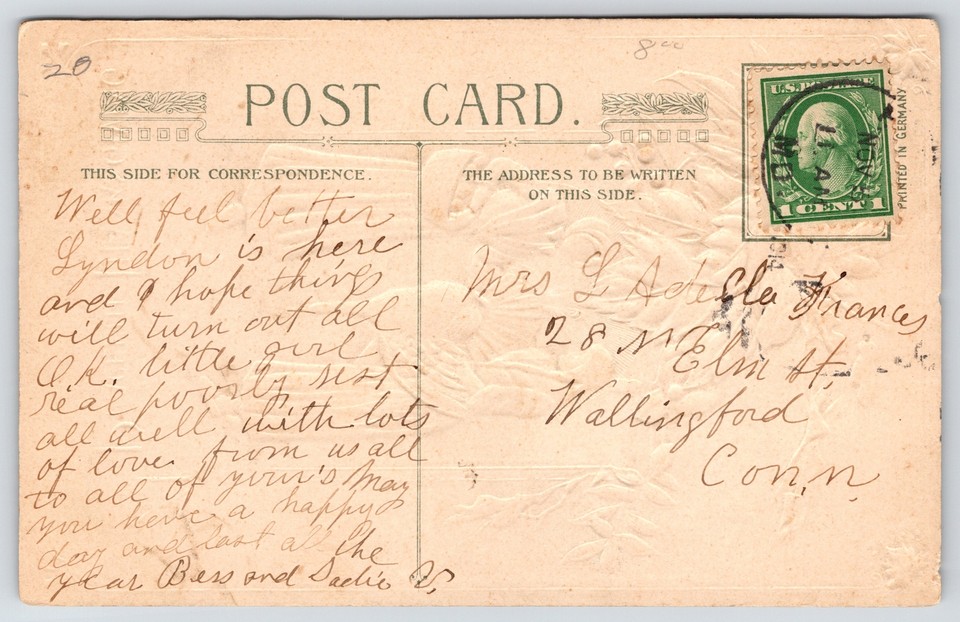 20
8.00
POST CARD.
THIS SIDE FOR CORRESPONDENCE.
Well feel better
Lyndon is here
and I hope things
will turn out all
O.K. little girl
real poorly rest
all well with lots
of love from us all
to all of your's May
you have a happy
day and last all the
year Bess and Sadie V.
THE ADDRESS TO BE WRITTEN
ON THIS SIDE.
Mrs L Adella Frances
28 N Elm St.
Wallingford
Conn.
U.S. POSTAGE
1 CENT 1
NOV
AM
MO
PRINTED IN GERMANY